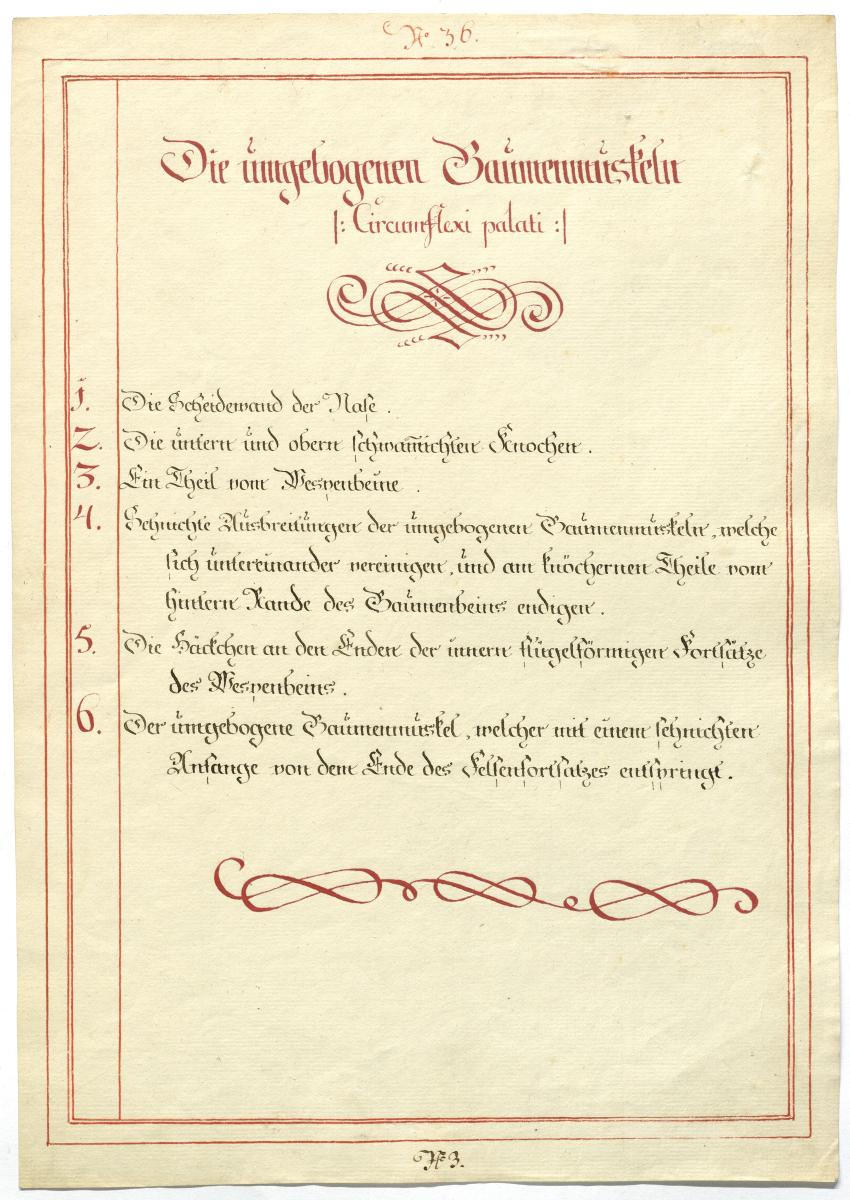 No. 36.
Die umgebogenen Gaumenmuskeln
|: Circumflexi palati :|
1. Die Scheidewand der Nase.
2. Die untern und obern schwam̅ichten Knochen.
3. Ein Theil vom Wespenbeine.
4. Sehnichte Ausbreitungen der umgebogenen Gaumenmuskeln, welche
sich untereinander vereinigen, und am knöchernen Theile vom
hintern Rande des Gaumenbeins endigen.
5. Die Häckchen an den Enden der innern flügelförmigen Fortsätze
des Wespenbeins.
6. Der umgebogene Gaumenmuskel, welcher mit einem sehnichten
Anfange von dem Ende des Felsenfortsatzes entspringt.